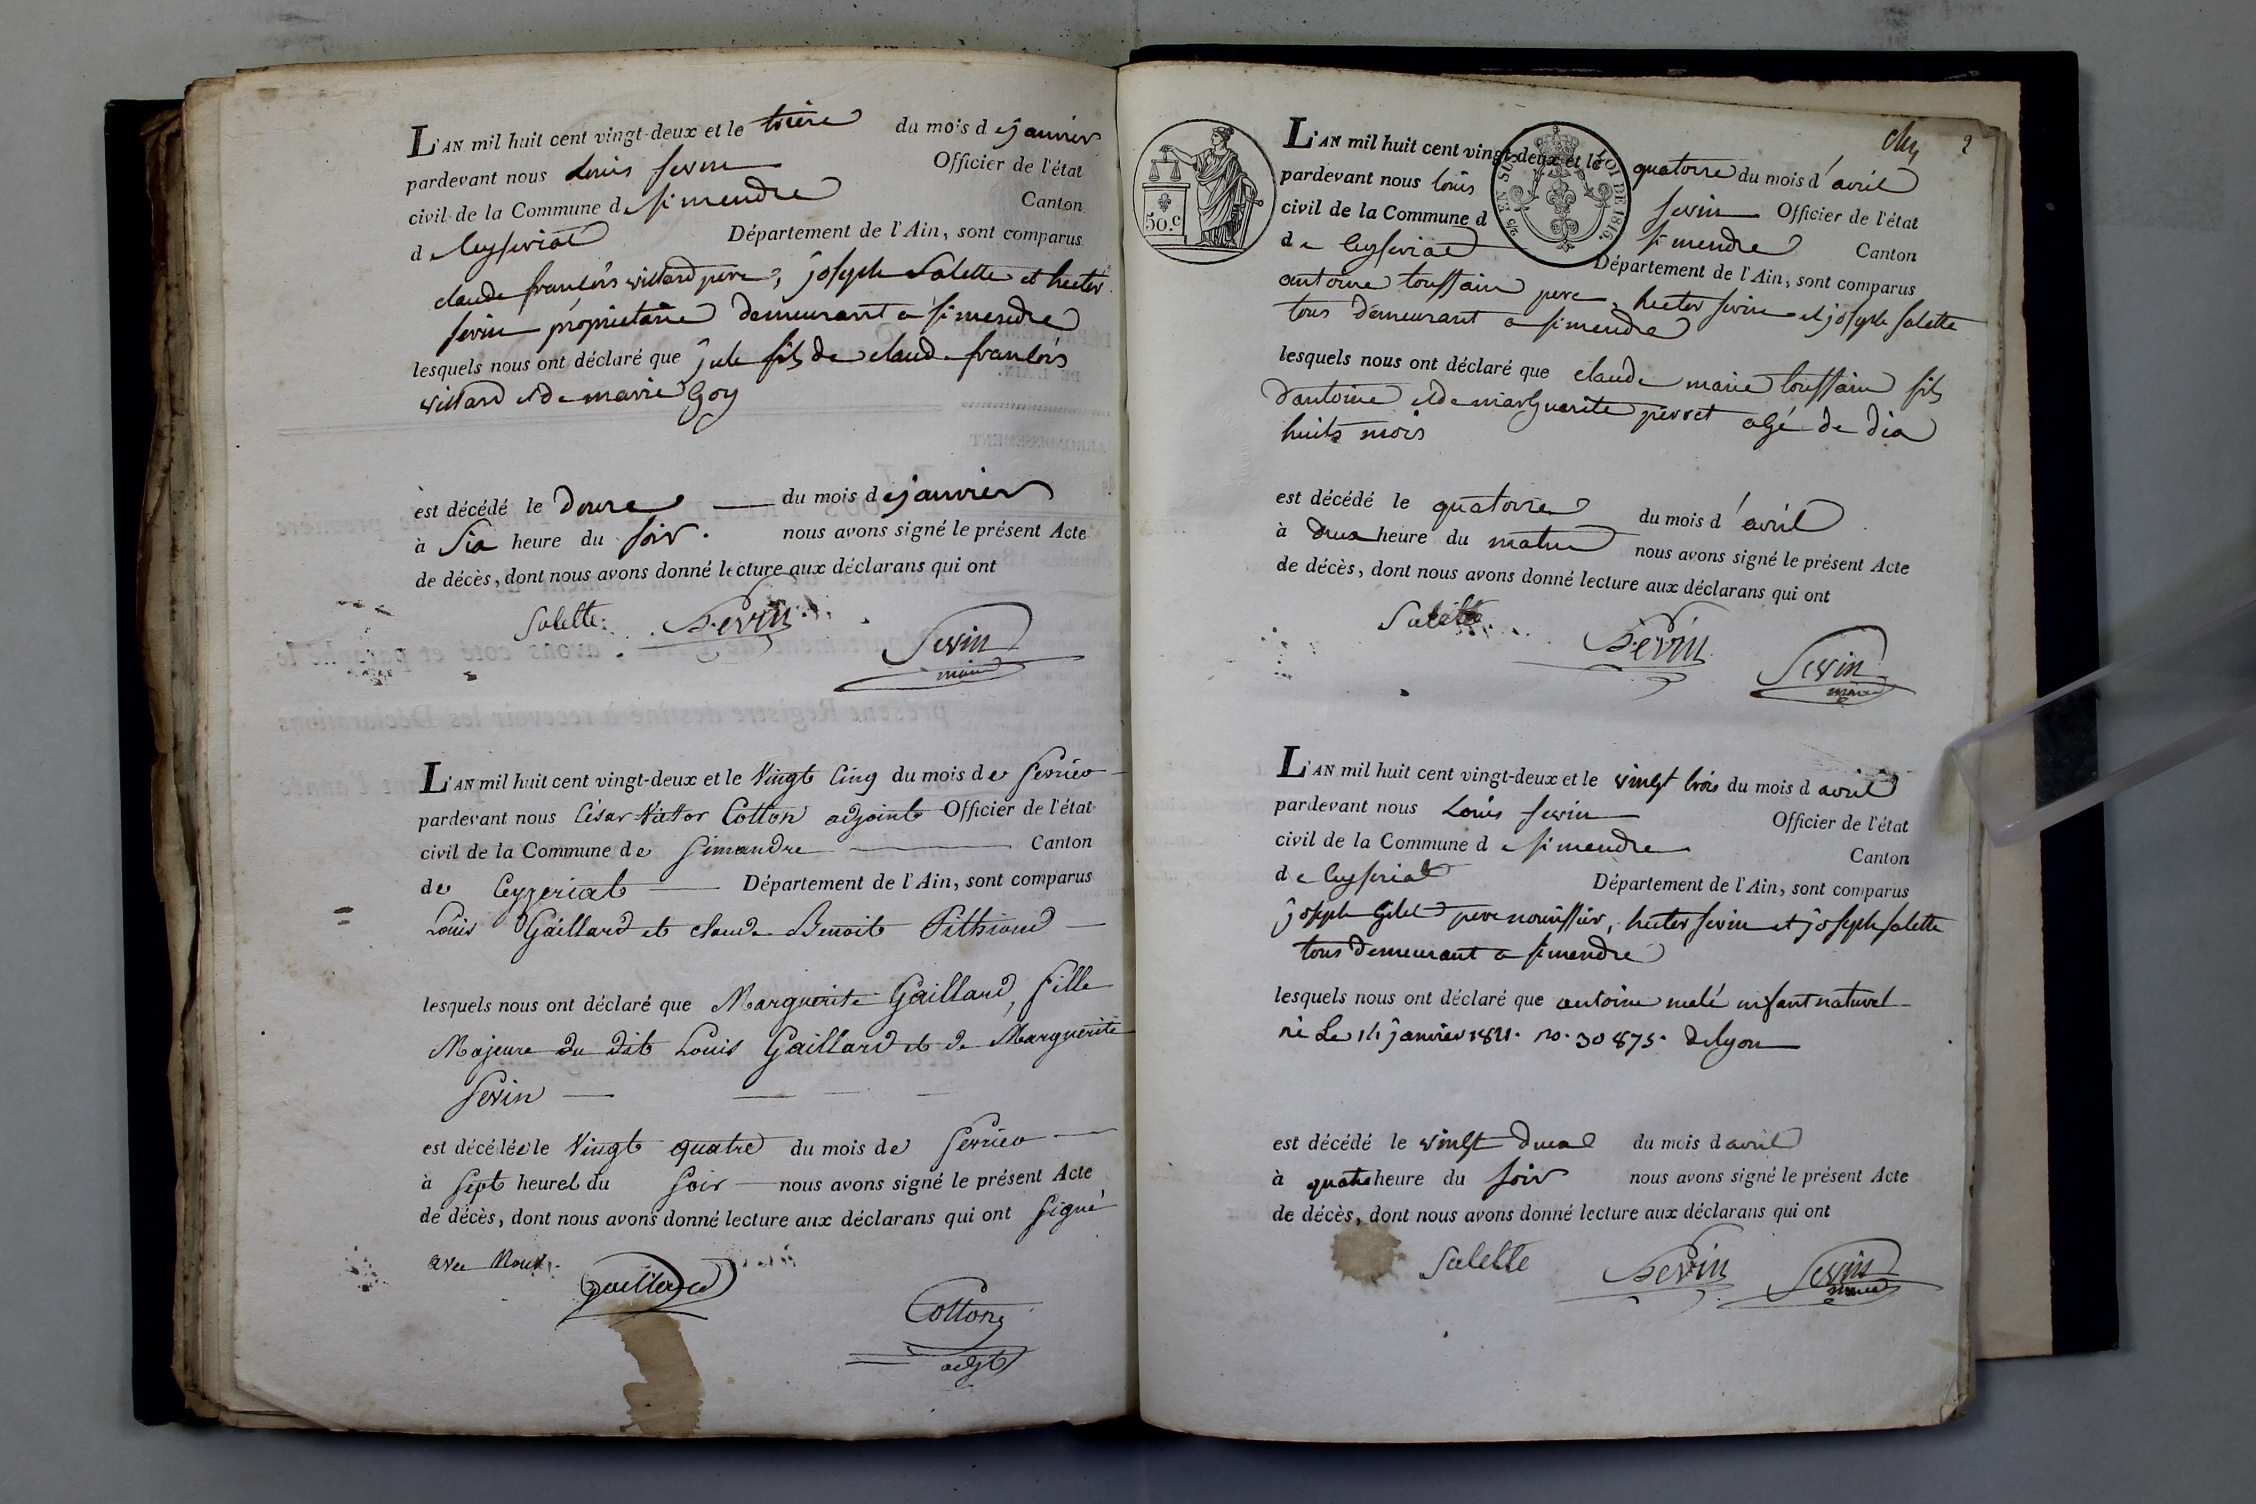 L'AN mil huit cent vingt-deux et le treize du mois de janvier
pardevant nous Louis sevin Officier de l'état
civil de la Commune de simendre Canton
d Ceyseriat Département de l'Ain, sont comparus
claude françois villard pere, joseph Salette et hector
sevin propriétaire demeurant a simendre
lesquels nous ont déclaré que jule fils de claude françois
villard et de marie Goy
est décédé le douze du mois de janvier
à Six heure du soir. nous avons signé le présent Acte
de décès, dont nous avons donné lecture aux déclarans qui ont
Salette. Sevin
Sevin
maire
L'AN mil huit cent vingt-deux et le Vingt Cinq du mois de fevrier
pardevant nous César Victor Cotton adjoint Officier de l'état
civil de la Commune de Simandre Canton
de Ceyzeriat Département de l'Ain, sont comparus
Louis Gaillard et claude Benoit Pithioud
lesquels nous ont déclaré que Marguerite Gaillard, fille
Majeure du dit Louis Gaillard et de Marguerite
Sevin
est décédée le Vingt quatre du mois de fevrier
à sept heures du soir nous avons signé le présent Acte
de décès, dont nous avons donné lecture aux déclarans qui ont signé
avec Nous.
Gaillard
Cotton
adjt
2
50.C
25 EN SUS
LOI DE 1816.
L'AN mil huit cent vingt-deux et le quatorze du mois d'avril
pardevant nous louis sevin Officier de l'état
civil de la Commune d simendre Canton
de Ceyseriat Département de l'Ain, sont comparus
antoine toussain pere, hector sevin et joseph salette
tous demeurant a simendre
lesquels nous ont déclaré que claude marie toussain fils
d'antoine et de marguerite perret agé de dix
huits mois
est décédé le quatorze du mois d'avril
à deux heure du matin nous avons signé le présent Acte
de décès, dont nous avons donné lecture aux déclarans qui ont
Salette
Sevin
Sevin
maire
L'AN mil huit cent vingt-deux et le vingt trois du mois d avril
pardevant nous Louis sevin Officier de l'état
civil de la Commune de simendre Canton
de Ceyseriat Département de l'Ain, sont comparus
joseph pere nourissier, hector sevin et joseph salette
tous demeurant a simendre
lesquels nous ont déclaré que antoine enfant naturel
né Le 14 janvier 1821. no. 30875. de lyon
est décédé le vingt deux du mois d avril
à quatre heure du soir nous avons signé le présent Acte
de décès, dont nous avons donné lecture aux déclarans qui ont
Salette Sevin Sevin
maire